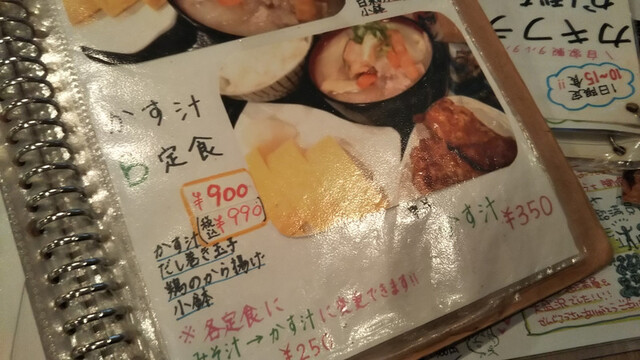 小鉢
かす汁
定食
¥900
(税込¥990)
かす汁
だし巻き玉子
鶏のから揚げ
小鉢
かす汁 ¥350
※各定食に
みそ汁→かす汁に変更できます!!
¥250
カキフラ
1日限定
10~15食!!